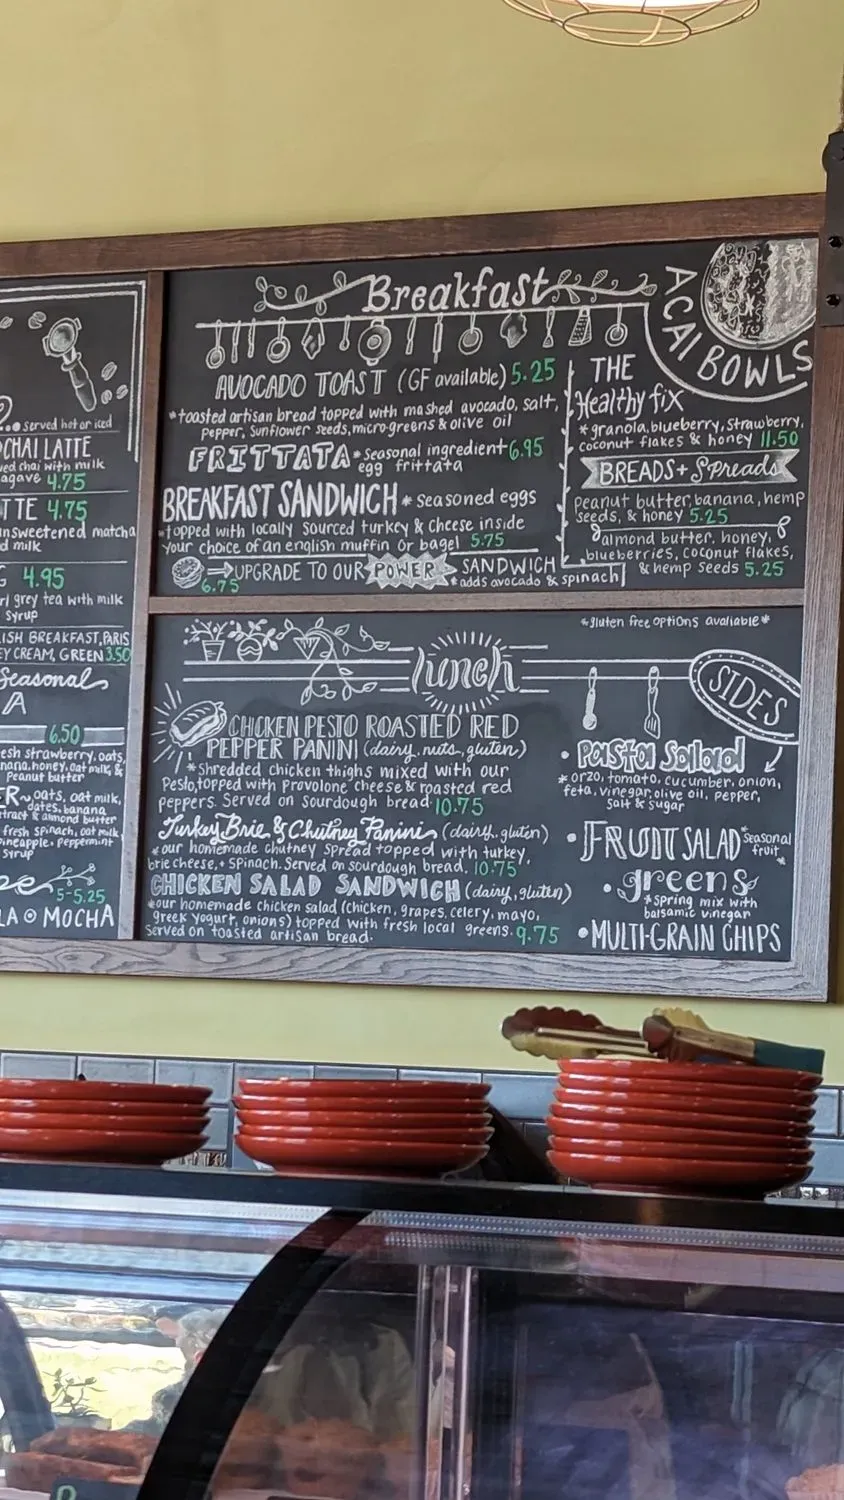 served hot or iced
CHAI LATTE
chai with milk
agave 4.75
TTE 4.75
unsweetened matcha
milk
4.95
grey tea with milk
syrup
BREAKFAST, PARIS
CREAM, GREEN 3.50
Seasonal
6.50
strawberry, oats,
honey, oat milk, &
Peanut butter
oats, oat milk,
dates, banana
& almond butter
fresh spinach, oat milk,
pineapple, peppermint
syrup
5-5.25
MOCHA
Breakfast
AVOCADO TOAST (GF available) 5.25
*toasted artisan bread topped with mashed avocado, salt,
Pepper, Sunflower seeds, microgreens & olive oil
FRITTATA *seasonal ingredient 6.95
egg frittata
BREAKFAST SANDWICH * seasoned eggs
*topped with locally sourced turkey & cheese inside
your choice of an english muffin or bagel 5.75
6.75 UPGRADE TO OUR POWER SANDWICH
*adds avocado & spinach
ACAI BOWLS
THE
Healthy fix
*granola, blueberry, strawberry,
coconut flakes & honey 11.50
BREADS + Spreads
Peanut butter, banana, hemp
seeds, & honey 5.25
almond butter, honey,
blueberries, coconut flakes,
& hemp seeds 5.25
*gluten free options avaliable*
lunch
CHICKEN PESTO ROASTED RED
PEPPER PANINI (dairy, nuts, gluten)
*shredded chicken thighs mixed with our
Pesto, topped with provolone cheese & roasted red
peppers. Served on sourdough bread. 10.75
Turkey Brie & Chutney Panini (dairy, gluten)
*our homemade chutney spread topped with turkey,
brie cheese, + spinach. Served on sourdough bread. 10.75
CHICKEN SALAD SANDWICH (dairy, gluten)
*our homemade chicken salad (chicken, grapes, celery, mayo,
greek yogurt, onions) topped with fresh local greens. 9.75
served on toasted artisan bread.
SIDES
• Pasta Salad
* orzo, tomato, cucumber, onion,
feta, vinegar, olive oil, pepper,
salt & sugar
• FRUIT SALAD *seasonal
fruit*
• greens
*spring mix with
balsamic vinegar
• MULTI-GRAIN CHIPS